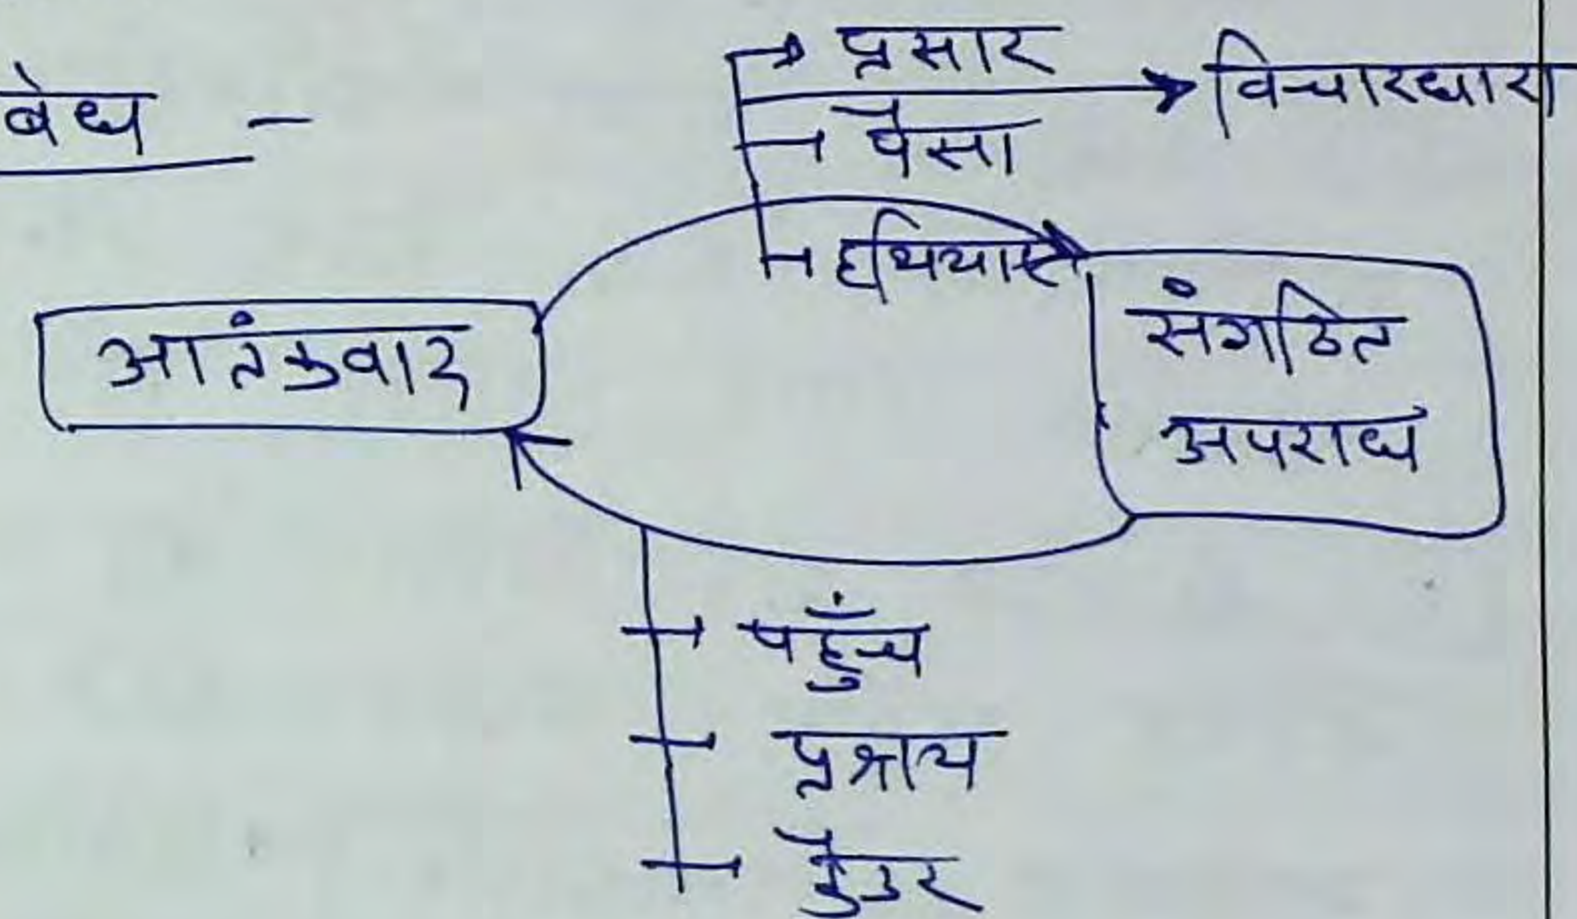 प्रसार
विचारधारा
बंध -
पैसा
हथियार
आतंकवाद
संगठित
अपराध
पहुँच
प्रश्रय
कैडर